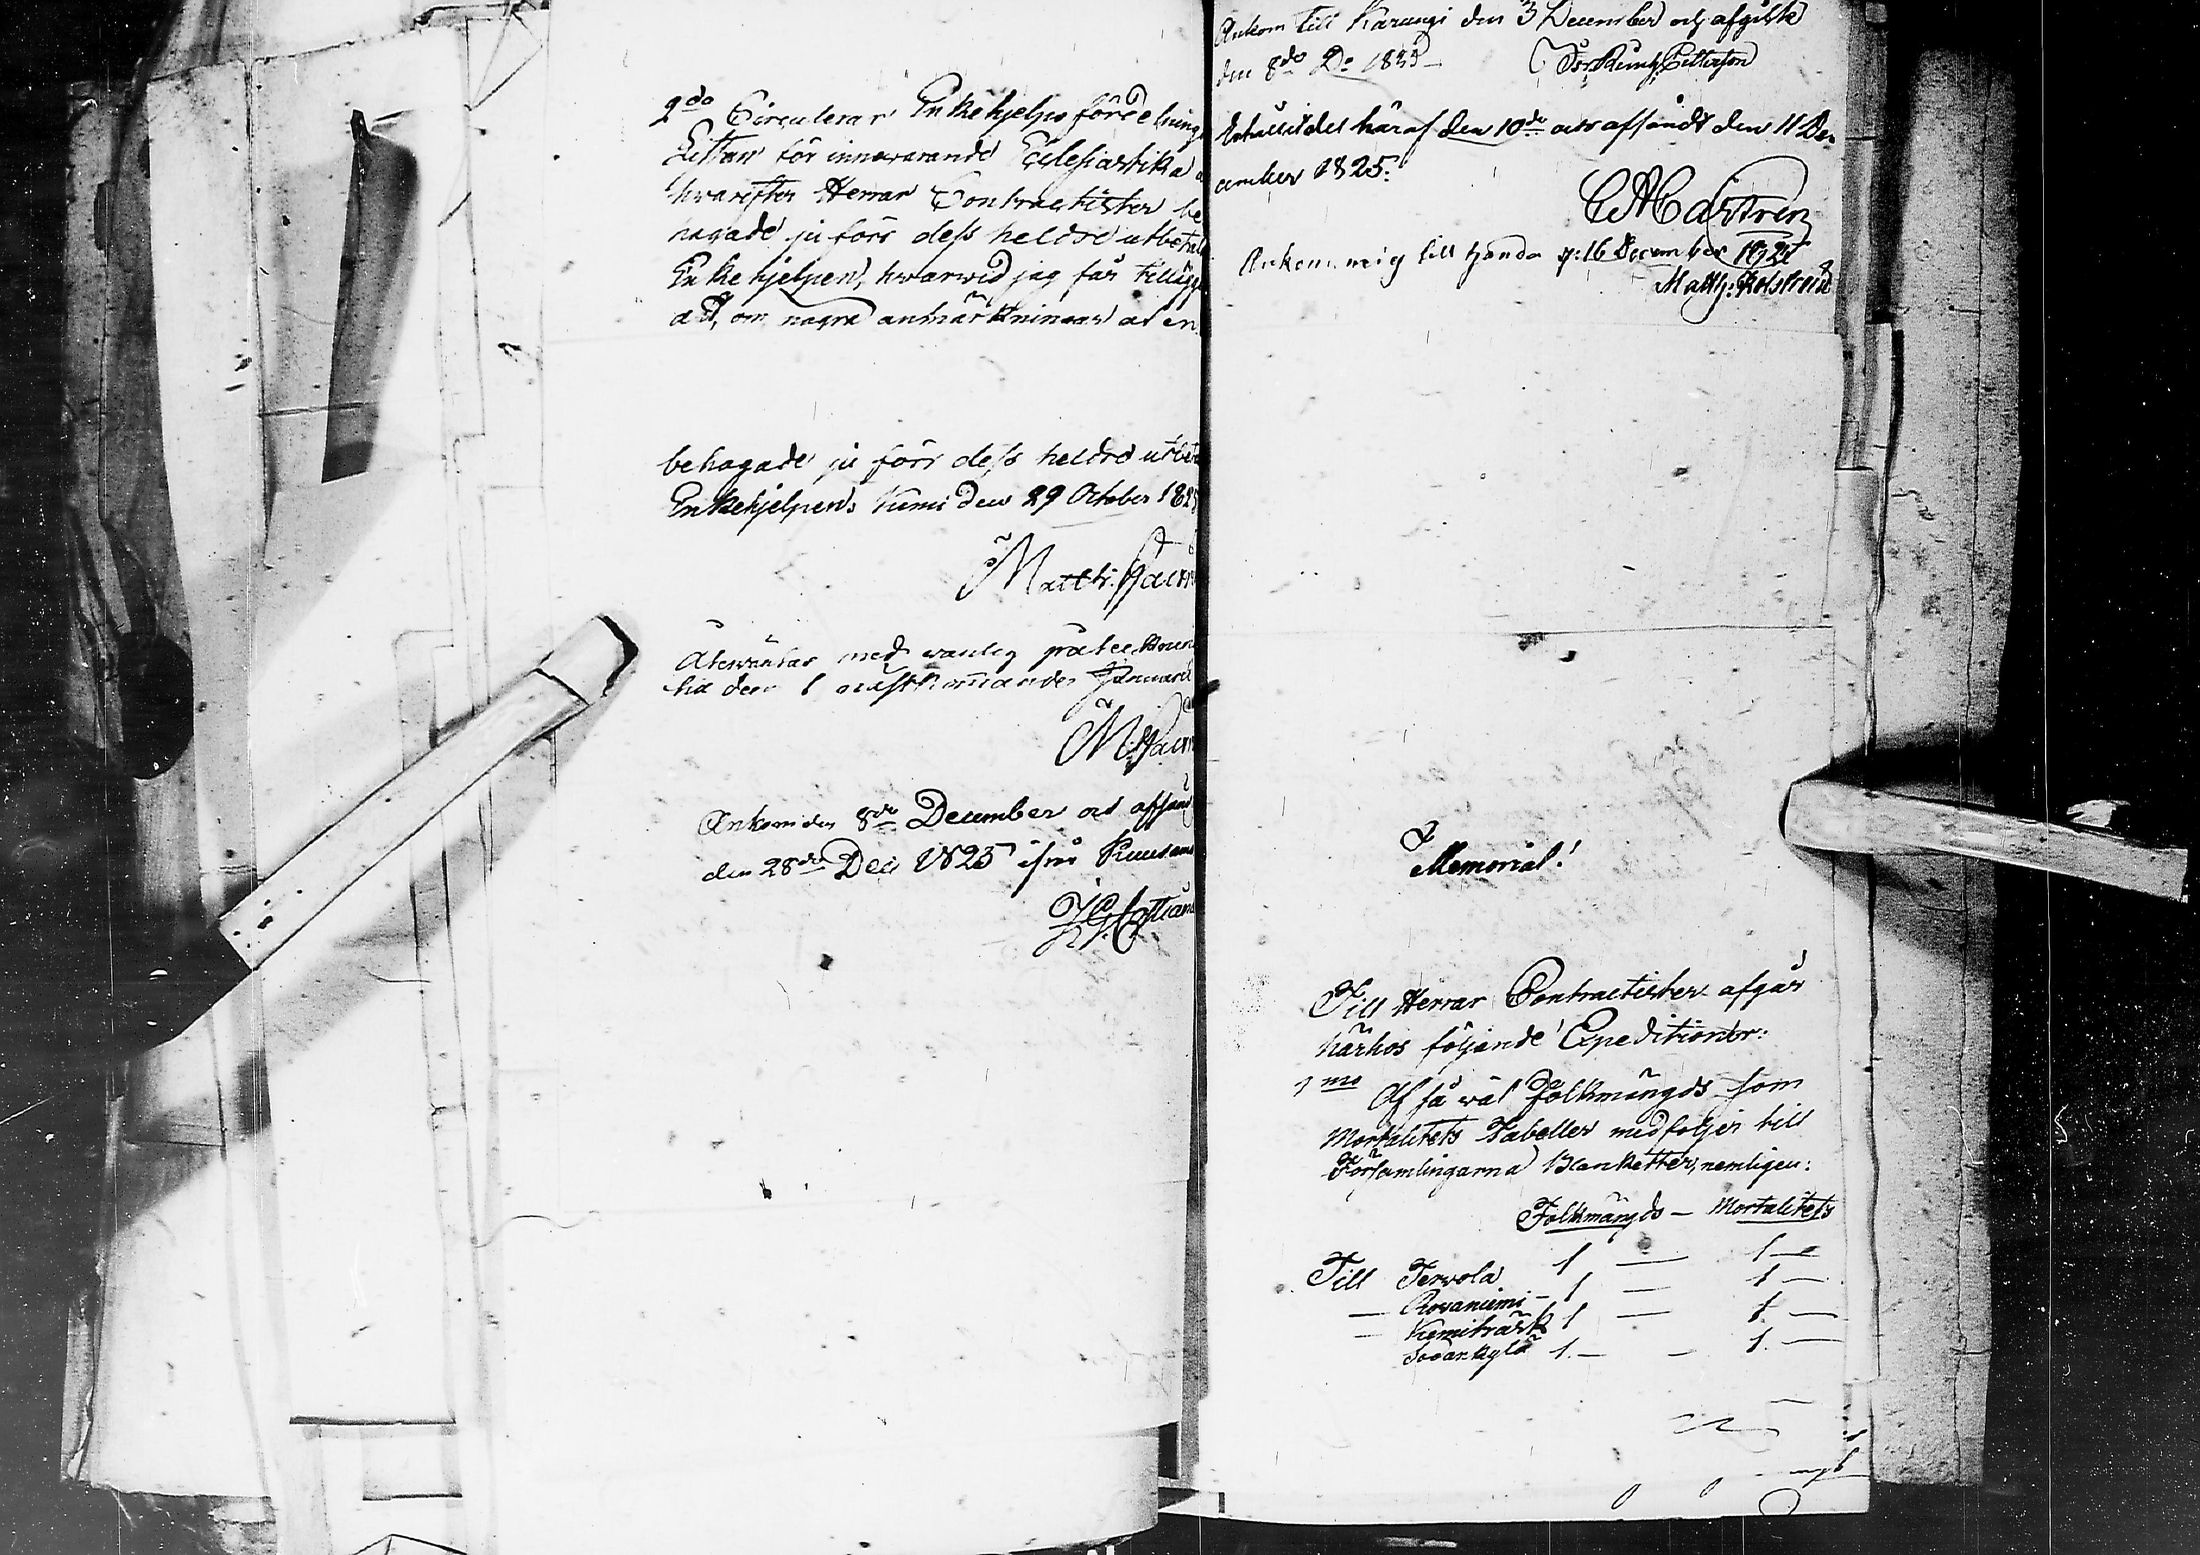 2do Circulerar Enkehjelps fördelnings
Listan för innewarande Ecclesiastika
hwarefter Herrar Contractister be
hagade ju förr dess heldre utbetal
Enkehjelpen, hwarwid jag får tillägg
att, om några anmärkningar
behagade ju förr dess heldre utbeta
Enkehjelpen. Kemi den 29 October 182
Matth.
Återwäntas med wanlig
den 1 nästkommande Januarii
M.
Ankom den 8de December och afsänd
den 28de Dec 1825 ifrån Kuusam
Ankom till Karungi den 3 December och afgick
den 8de Do 1825
Erhållit del häraf den 10de och afsändt den 11 De-
cember 1825.
CMCastrén
Ankom mig till handa d: 16 December 1825
Matth:
Memorial!
Till Herrar Contractister afgår
härhos följande Expeditioner:
1mo Af så wäl Folkmängds som
Mortalitets Tabeller medföljer till
Församlingarna Blanketter, nemligen:
Folkmängds — Mortalitets
Till Terwola 1 — 1 —
— Rovaniemi — 1 — 1 —
— Kemiträsk 1 — 1 —
Sodankylä 1. — — 1. —